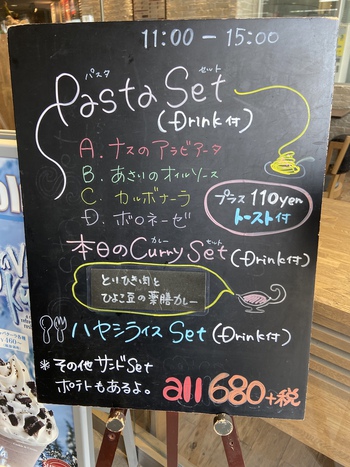 11:00 - 15:00
パスタ セット
Pasta Set
(Drink付)
A. ナスのアラビアータ
B. あさりのオイルソース
C. カルボナーラ
D. ボロネーゼ
プラス 110yen
トースト付
カレー セット
本日のCurry Set (Drink付)
とりひき肉と
ひよこ豆の薬膳カレー
ハヤシライス Set (Drink付)
*その他 サンドSet
ポテトもあるよ。
all 680+税